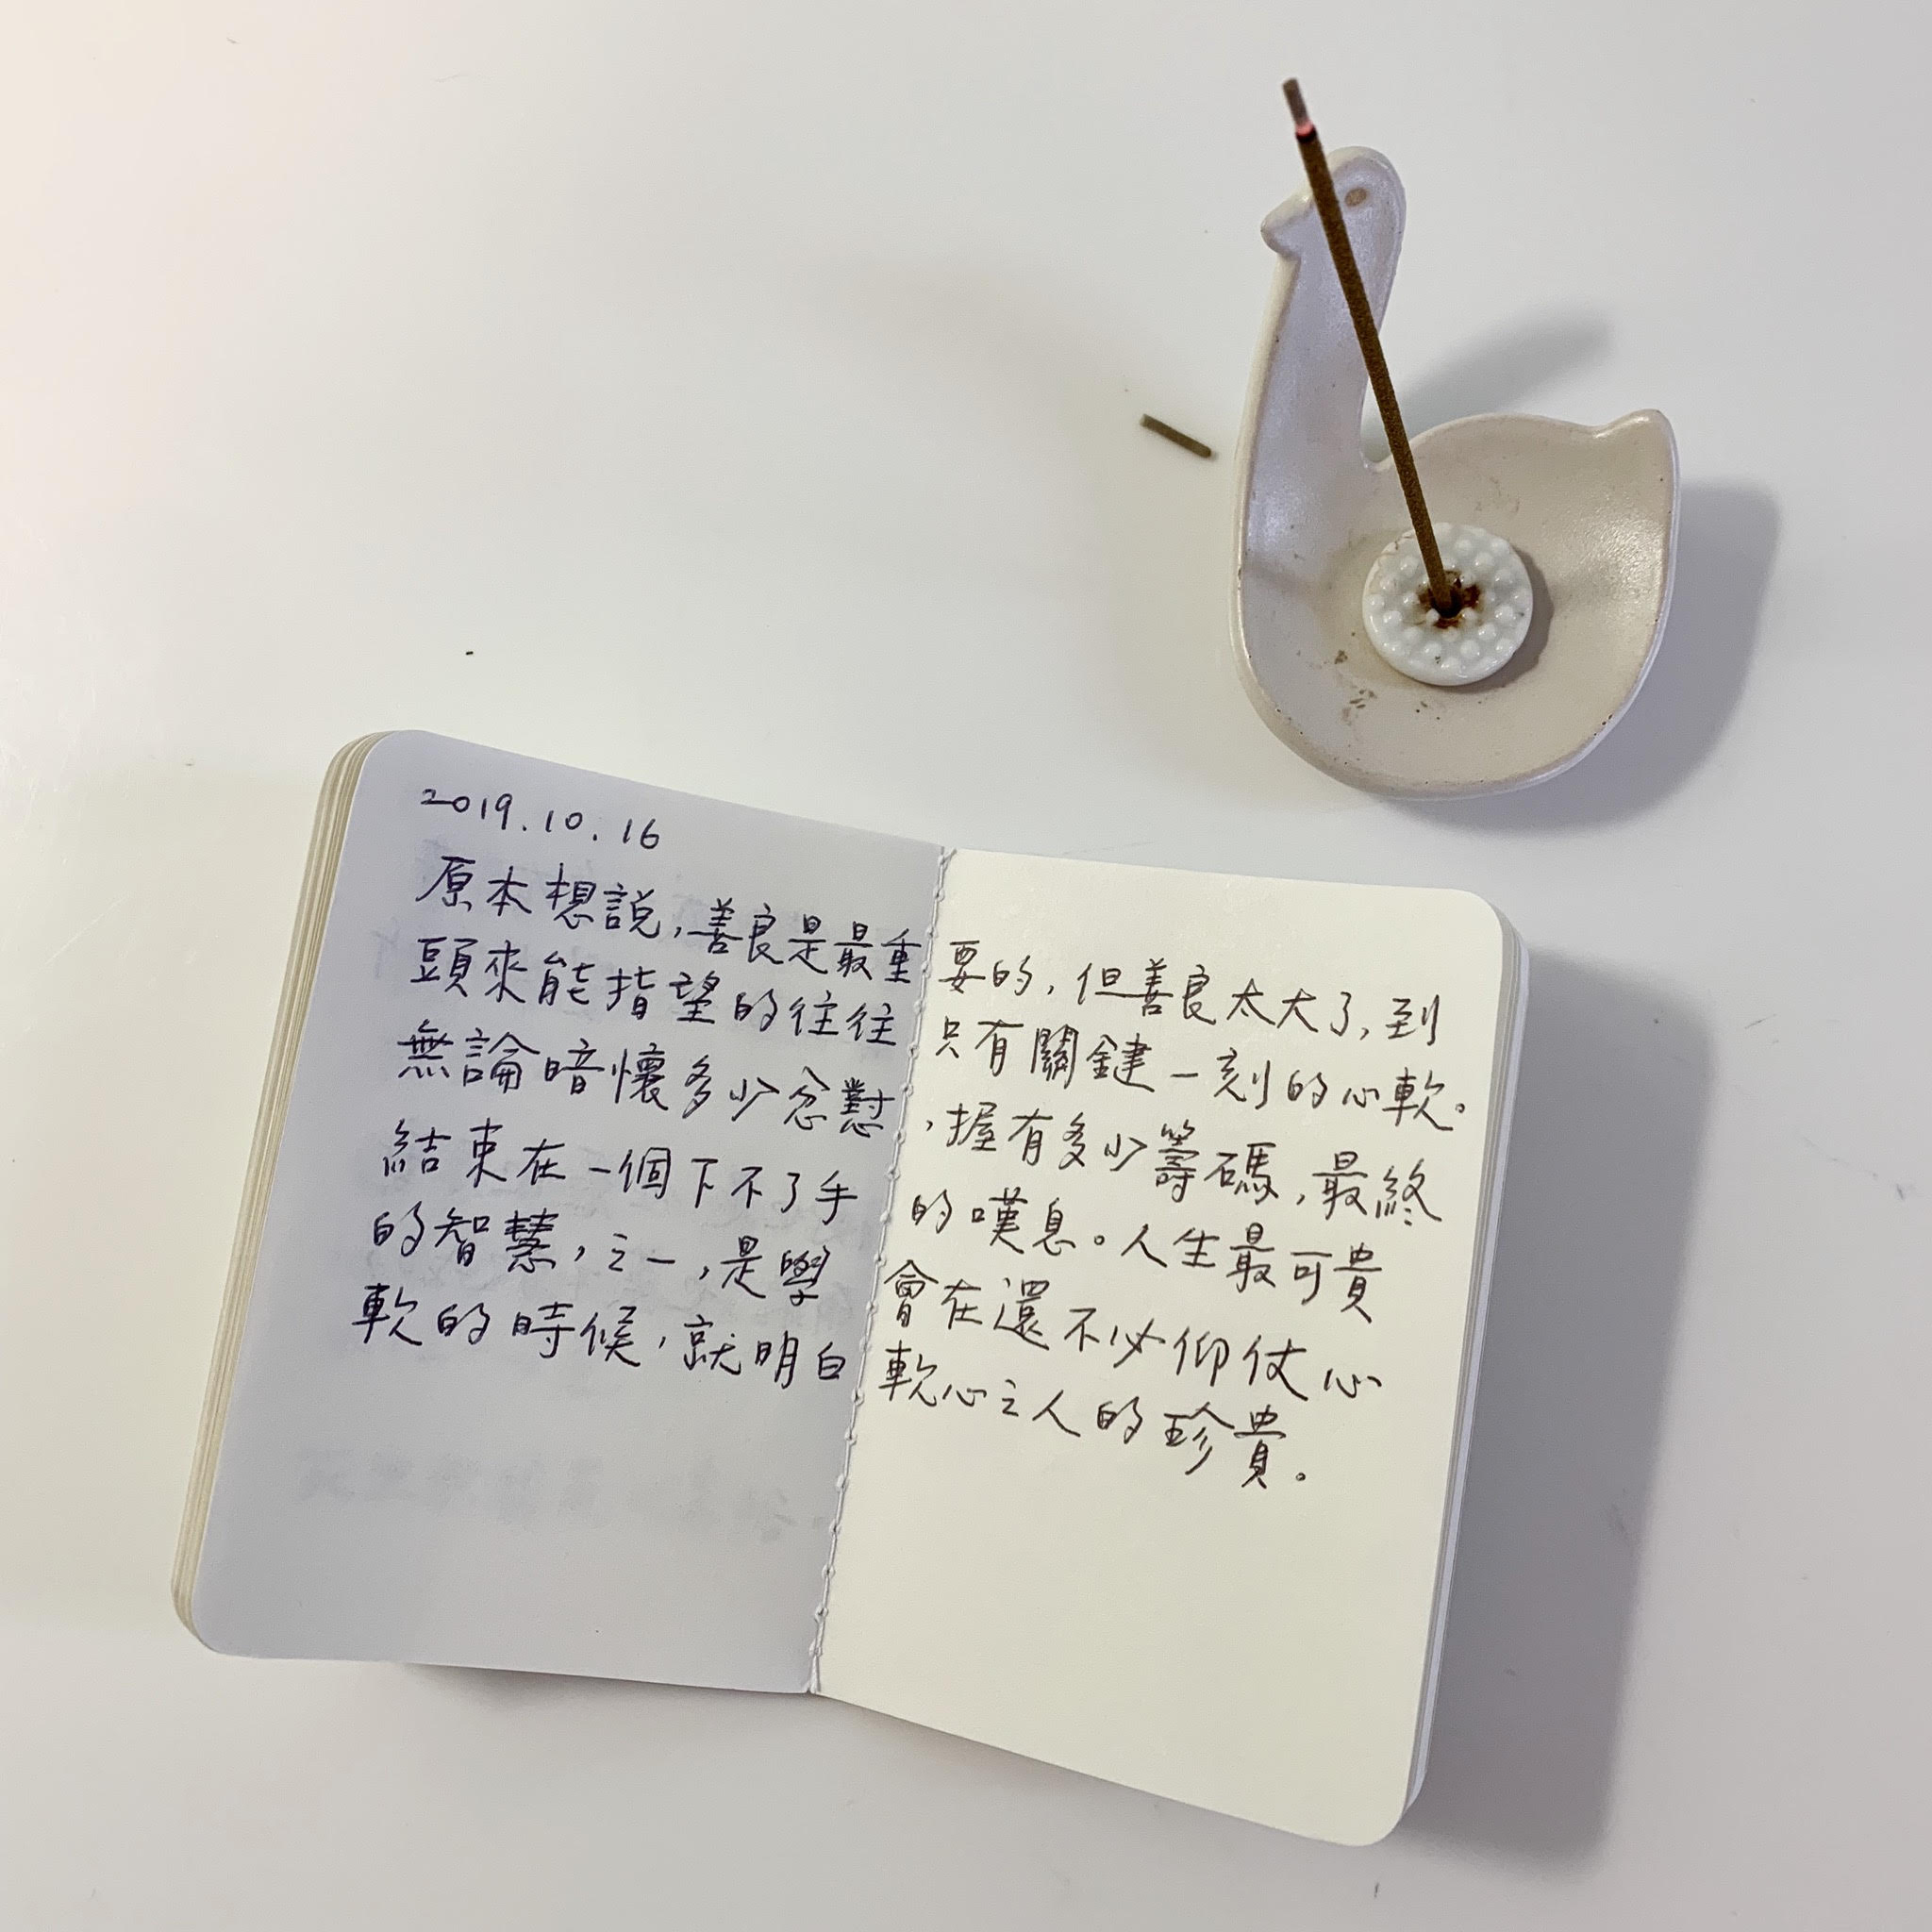 2019.10.16
原本想說,善良是最重要的,但善良太大了,到
頭來能指望的往往只有關鍵一刻的心軟。
無論暗懷多少忿懟,握有多少籌碼,最終
結束在一個下不了手的嘆息。人生最可貴
的智慧,之一,是學會在還不必仰仗心
軟的時候,就明白軟心之人的珍貴。